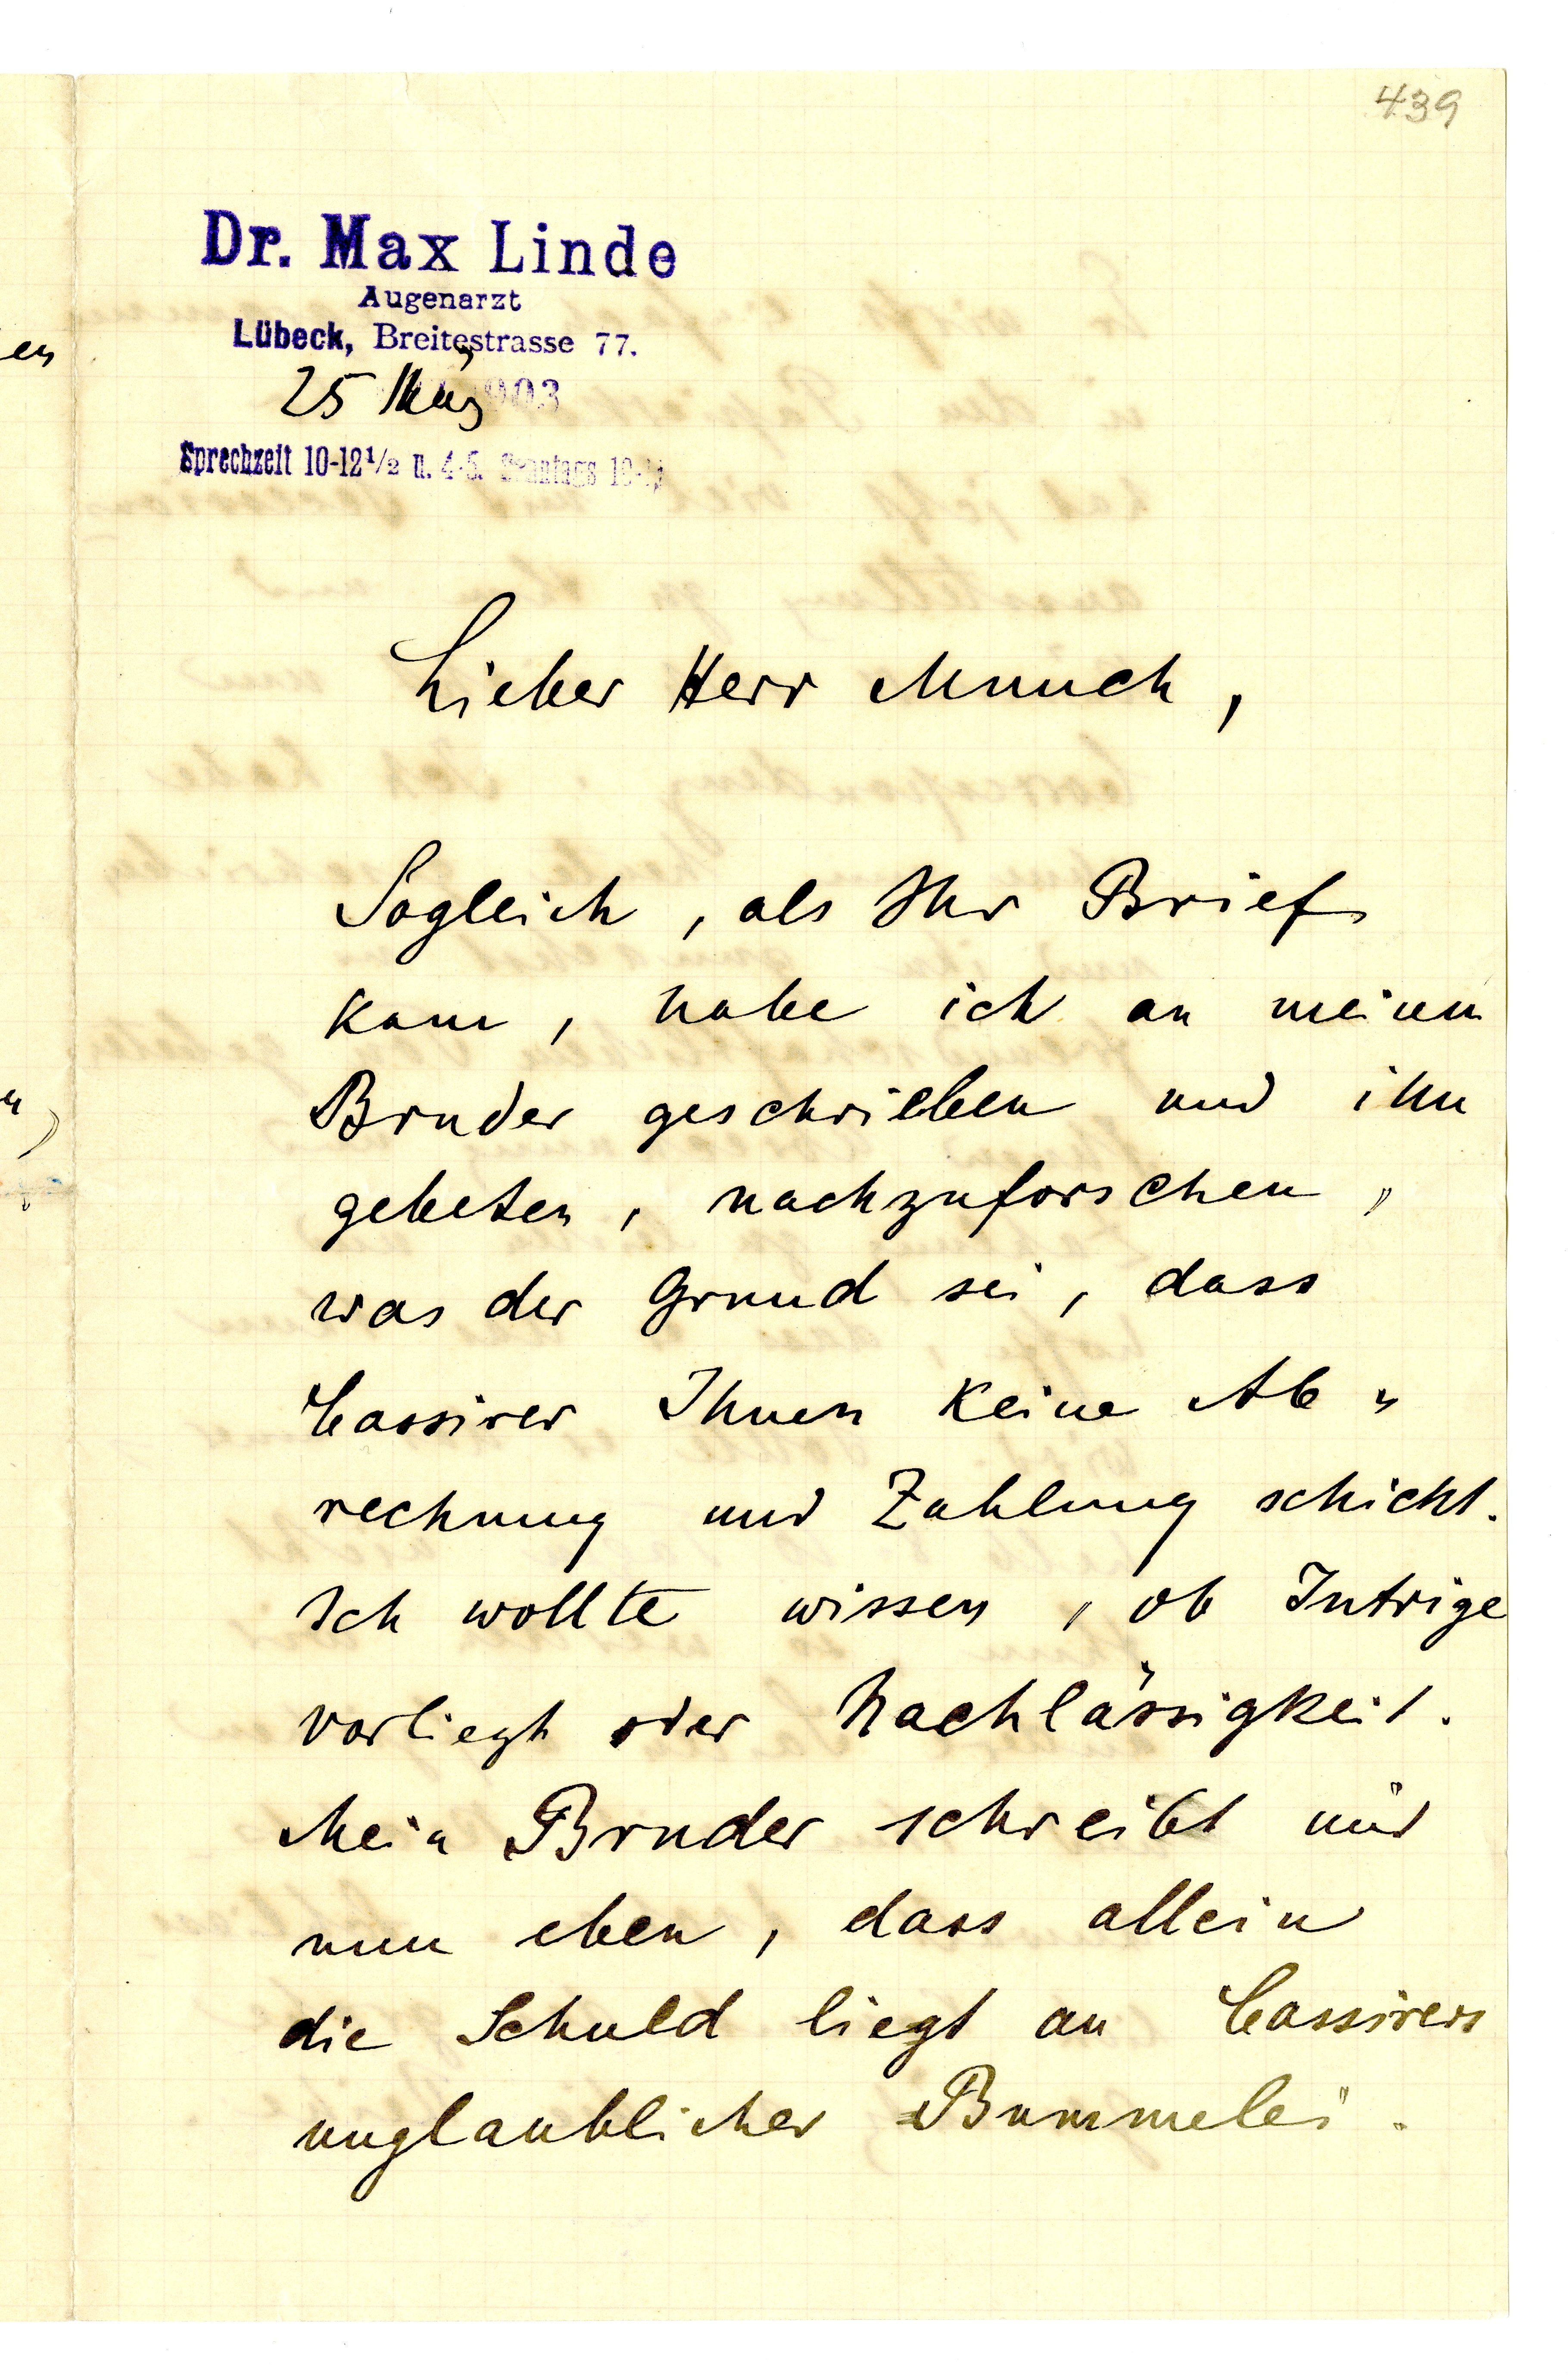 439
Dr. Max Linde
Augenarzt
Lübeck, Breitestrasse 77.
25 März 1903
Sprechzeit 10-12½ u. 4-5. Sonntags
Lieber Herr Munch,
Sogleich, als Ihr Brief
kam, habe ich an meinen
Bruder geschrieben und ihn
gebeten, nachzuforschen,
was der Grund sei, dass
Cassirer Ihnen keine Ab-
rechnung und Zahlung schickt.
Ich wollte wissen, ob Intrige
vorliegt oder Nachlässigkeit.
Mein Bruder schreibt mir
nun eben, dass allein
die Schuld liegt an Cassirers
unglaublicher Bummelei.